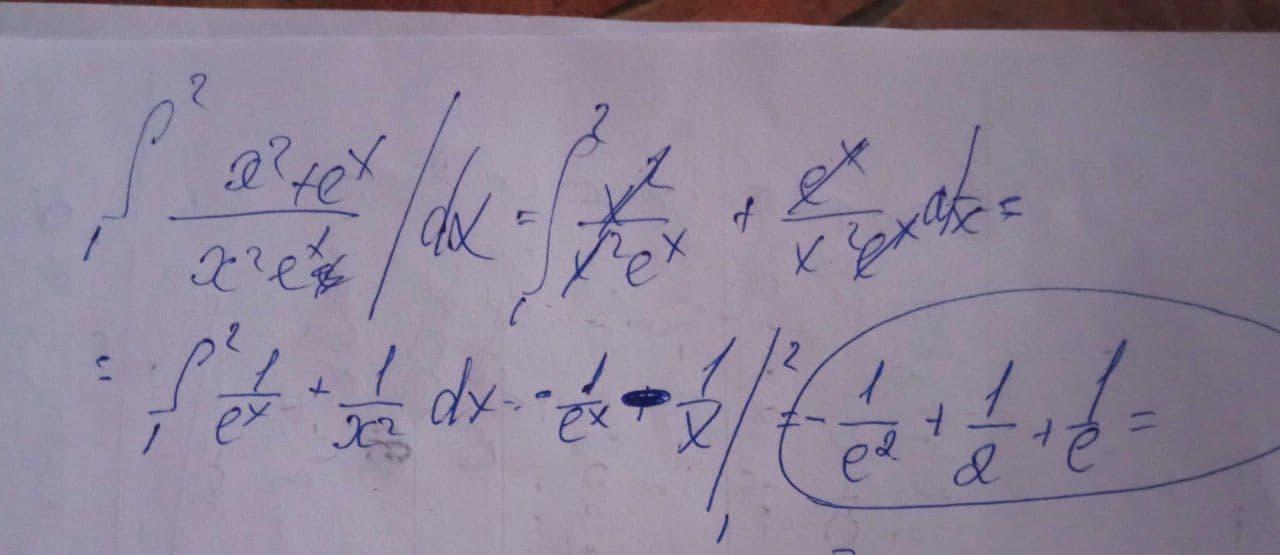 ∫₁² (x²+eˣ)/(x²eˣ) / dx = ∫₁² x²/(x²eˣ) + eˣ/(x²eˣ) dx =
= ∫₁² 1/eˣ + 1/x² dx = - 1/eˣ - 1/x |₁² = - 1/e² + 1/2 + 1/e =